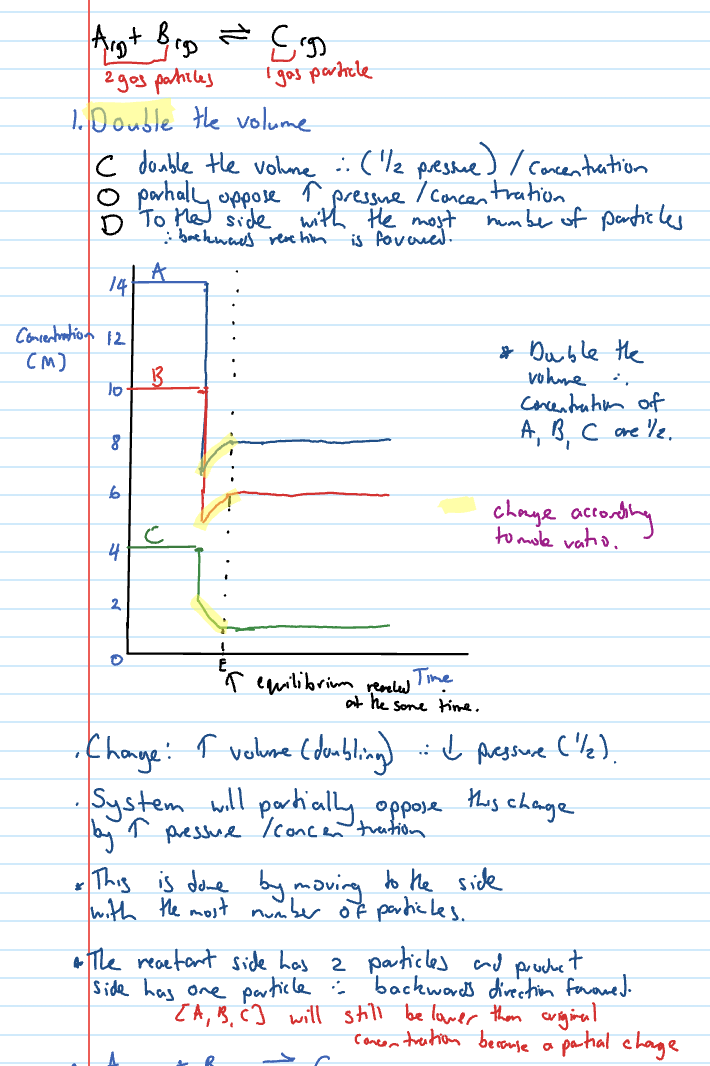 A(g) + B(g) ⇌ C(g)
2 gas particles 1 gas particle
1. Double the volume
C double the volume ∴ (1/2 pressure) / concentration
O partially oppose ↑ pressure / concentration
D To the side with the most number of particles
∴ backwards reaction is favoured.
A
14
Concentration
(M)
12
B
10
8
6
C
4
2
0
E
Time
* Double the
volume ∴
concentration of
A, B, C are 1/2.
change according
to mole ratio.
↑ equilibrium reached
at the same time.
. Change: ↑ volume (doubling) ∴ ↓ pressure (1/2).
. System will partially oppose this change
by ↑ pressure / concentration
* This is done by moving to the side
with the most number of particles.
* The reactant side has 2 particles and product
side has one particle ∴ backwards direction favoured.
[A, B, C] will still be lower than original
concentration because a partial change